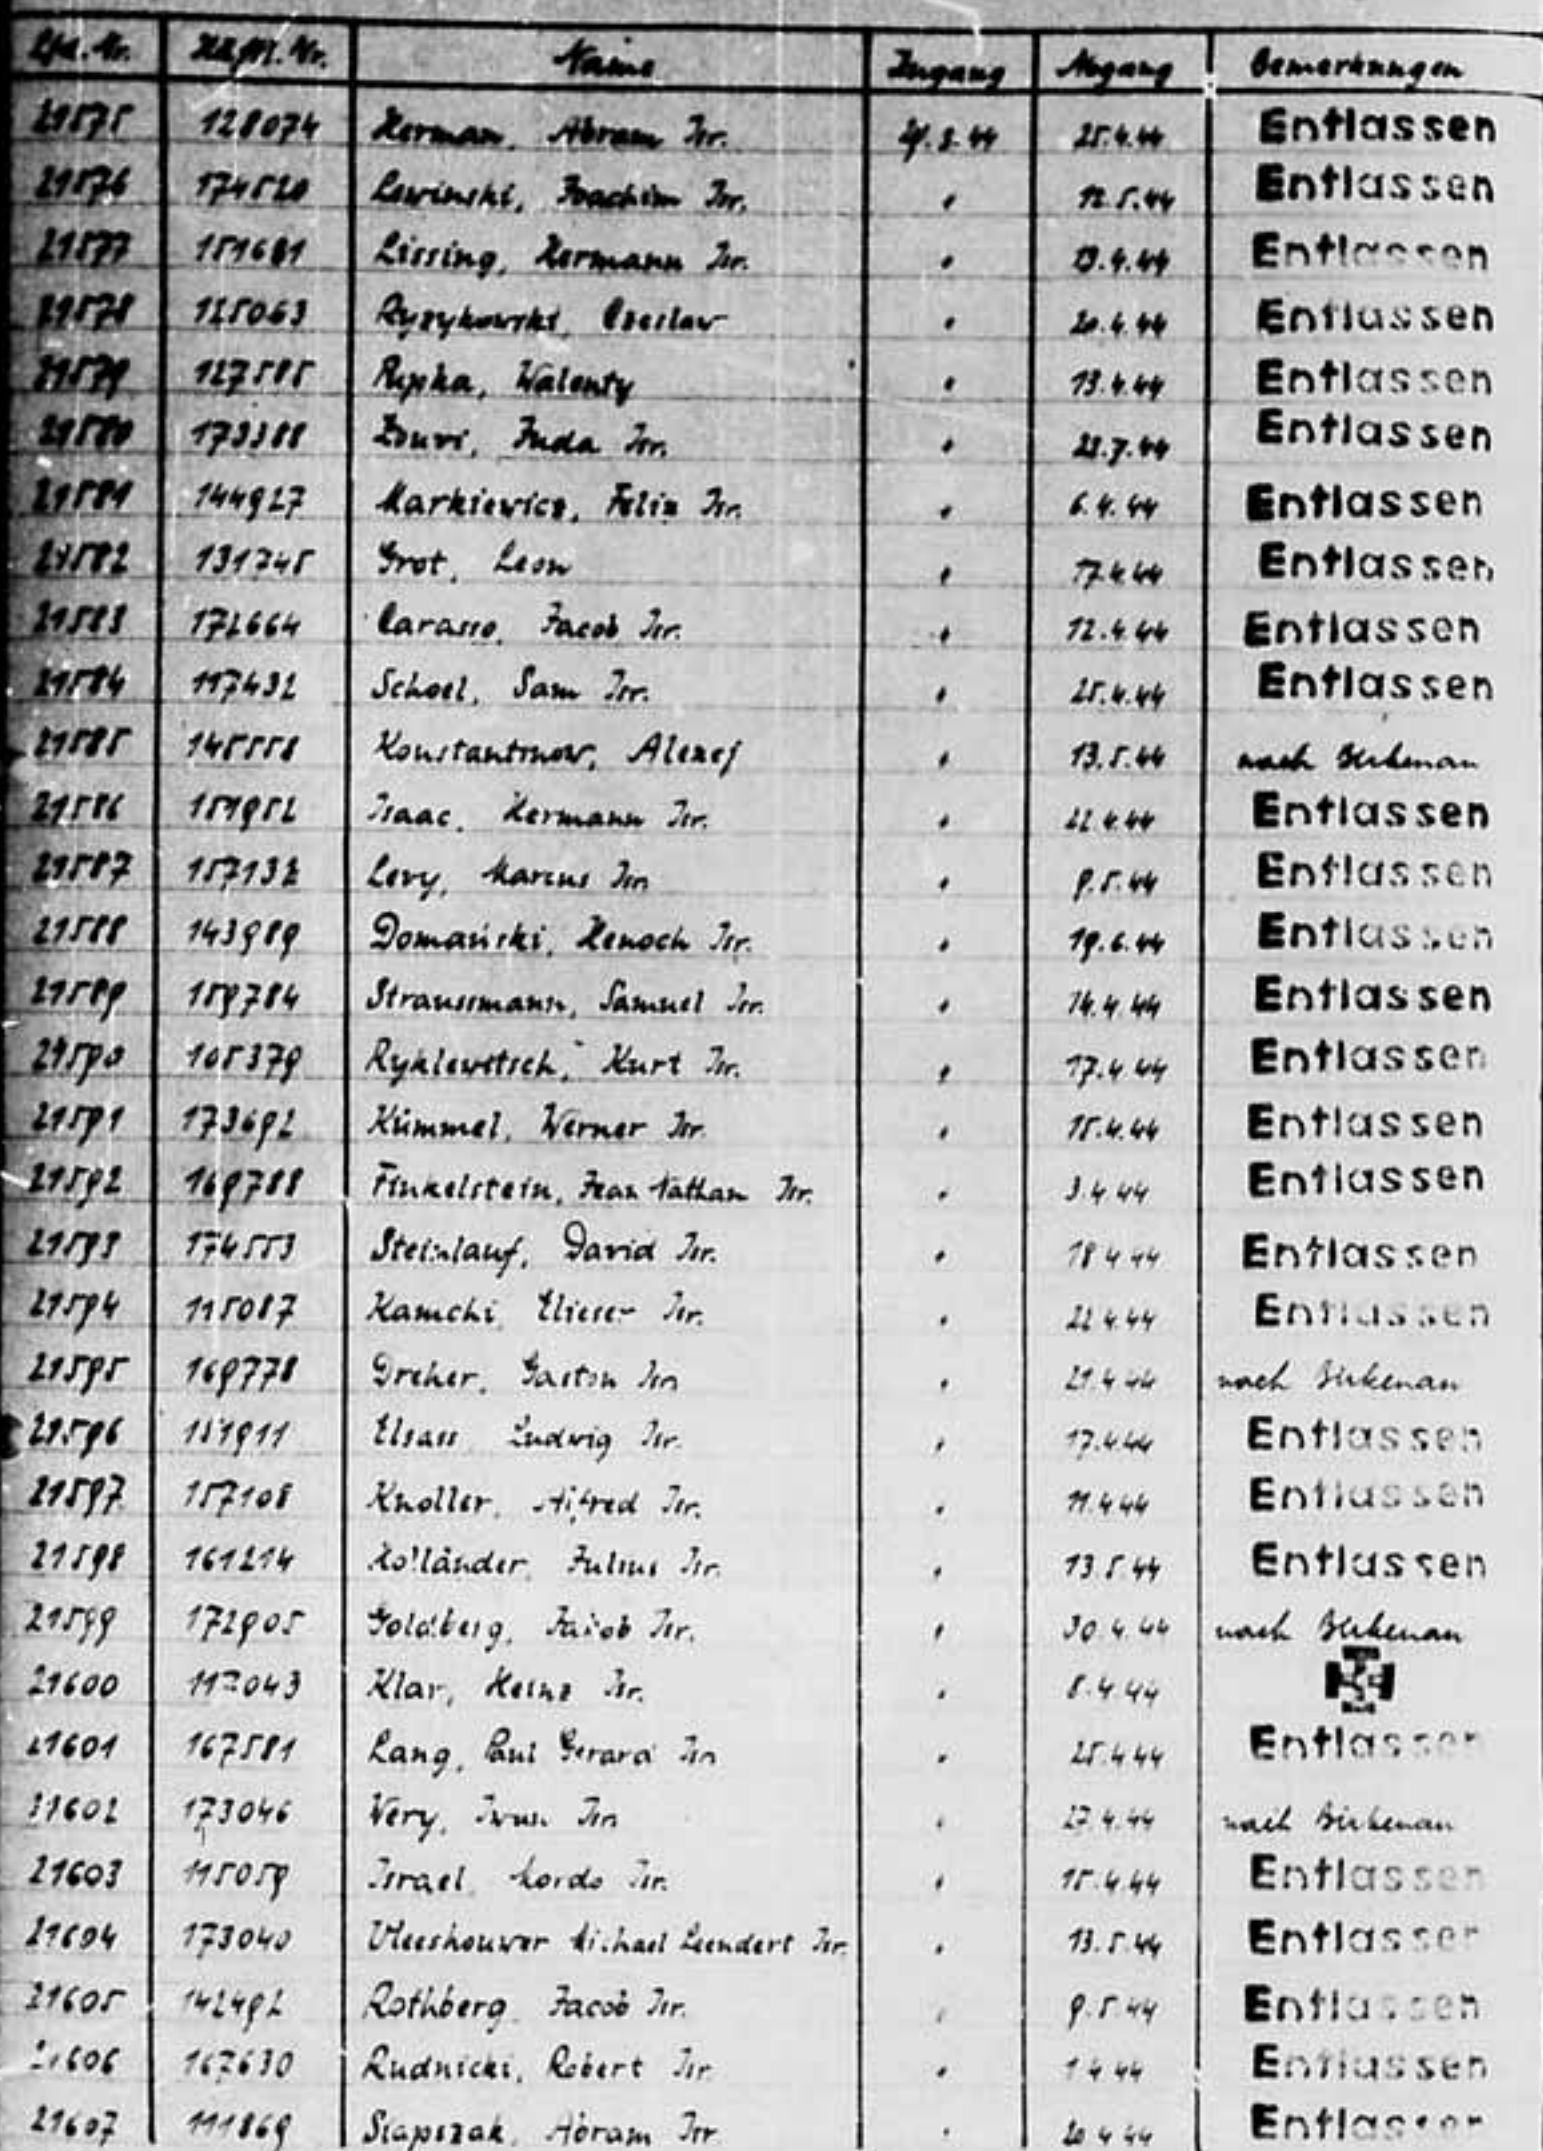 Lfd. Nr. Häftl. Nr. Name Zugang Abgang Bemerkungen
21575 128074 Herman, Abram Isr. 29.3.44 25.4.44 Entlassen
21576 174520 Lewinski, Joachim Isr. " 12.5.44 Entlassen
21577 151681 Lissing, Hermann Isr. " 13.4.44 Entlassen
21578 125063 Ryzykowski, Czeslaw " 20.4.44 Entlassen
21579 127585 Rupka, Walenty " 13.4.44 Entlassen
21580 173388 Juda Isr. " 28.7.44 Entlassen
21581 144927 Markiewicz, Felix Isr. " 6.4.44 Entlassen
21582 131745 Grot, Leon " 17.4.44 Entlassen
21583 172664 Carasso, Jacob Isr. " 12.4.44 Entlassen
21584 117432 Schoel, Sam Isr. " 25.4.44 Entlassen
21585 145558 Konstantinow, Alexej " 13.5.44 nach Birkenau
21586 151952 Isaac, Hermann Isr. " 22.4.44 Entlassen
21587 157132 Levy, Marcus Isr. " 9.5.44 Entlassen
21588 143989 Domański, Henoch Isr. " 19.6.44 Entlassen
21589 159784 Straussmann, Samuel Isr. " 14.4.44 Entlassen
21590 105379 Ryklewitsch, Kurt Isr. " 17.4.44 Entlassen
21591 173692 Kümmel, Werner Isr. " 15.4.44 Entlassen
21592 169788 Finkelstein, Jean Nathan Isr. " 3.4.44 Entlassen
21593 174553 Steinlauf, David Isr. " 18.4.44 Entlassen
21594 115087 Kamchi, Elieser Isr. " 22.4.44 Entlassen
21595 169778 Dreher, Gaston Isr. " 21.4.44 nach Birkenau
21596 151911 Elsass, Ludwig Isr. " 17.4.44 Entlassen
21597 157108 Knoller, Alfred Isr. " 11.4.44 Entlassen
21598 161214 Holländer, Julius Isr. " 13.5.44 Entlassen
21599 172905 Goldberg, Jacob Isr. " 30.4.44 nach Birkenau
21600 117043 Klar, Heinz Isr. " 8.4.44
21601 167581 Lang, Paul Gerard Isr. " 25.4.44 Entlassen
21602 173046 Very, Isr. " 27.4.44 nach Birkenau
21603 115059 Israel, Mordo Isr. " 15.4.44 Entlassen
21604 173040 Vleeshouwer Michael Leendert Isr. " 13.5.44 Entlassen
21605 142492 Rothberg, Jacob Isr. " 9.5.44 Entlassen
21606 167630 Rudnicki, Robert Isr. " 1.4.44 Entlassen
21607 111869 Slapszak, Abram Isr. " 20.4.44 Entlassen